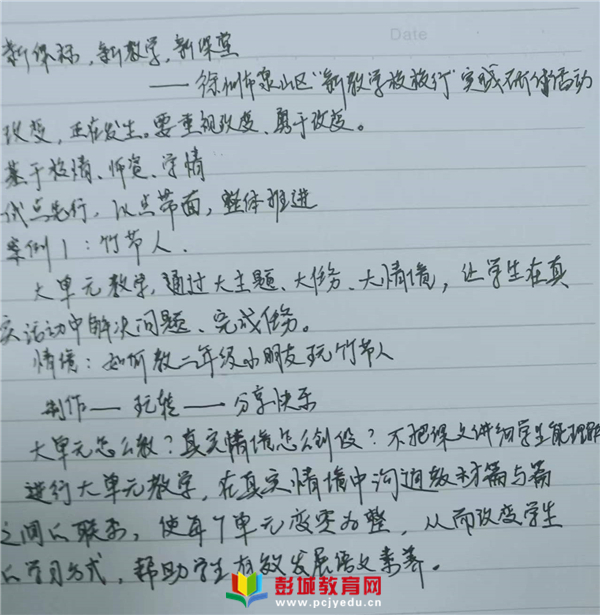 Date
新课标,新教学,新课堂
——徐州市泉山区“新教学放旅行”实践研修活动
改变,正在发生。要重视改变、勇于改变。
基于校情、师资、学情
试点先行,以点带面,整体推进
案例1:竹节人.
大单元教学,通过大主题、大任务、大情境,让学生在真
实活动中解决问题、完成任务。
情境:如何教二年级小朋友玩竹节人
制作——玩转——分享快乐
大单元怎么教?真实情境怎么创设?不把课文讲细学生能理解
进行大单元教学,在真实情境中沟通教材篇与篇
之间的联系,使每个单元变零为整,从而改变学生
的学习方式,帮助学生有效发展语文素养。
彭城教育网
www.pcjyedu.cn